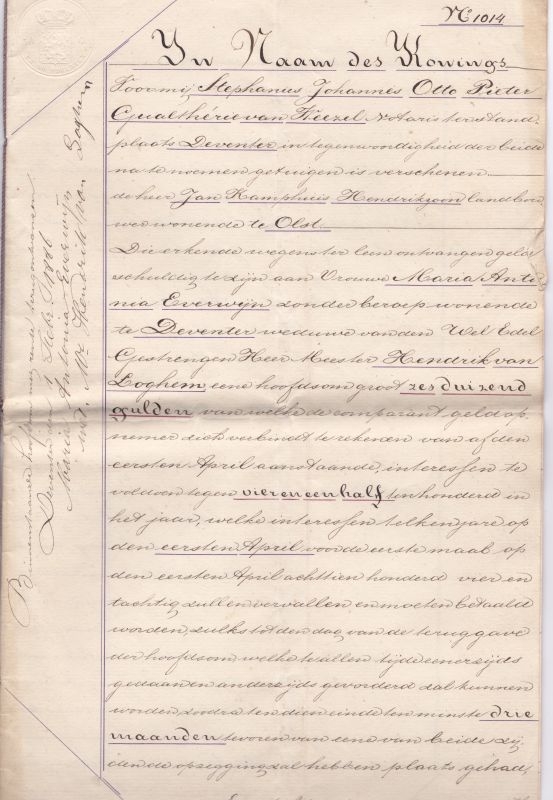 No 1014
In Naam des Konings
Voor mij Stephanus Johannes Otto Pieter
Gualthérie van Weezel Notaris ter stand-
plaats Deventer in tegenwoordigheid der beide
na te noemen getuigen is verschenen
de heer Jan Kamphuis Hendrikszoon landbou
wer wonende te Olst.
Die erkende wegens ter leen ontvangen geld
schuldig te zijn aan Vrouwe Maria Anto
nia Everwijn zonder beroep wonende
te Deventer weduwe van den Wel Edel
Gestrengen Heer Meester Hendrik van
Loghem eene hoofdsom groot zes duizend
gulden van welke de comparant geldop
nemer zich verbindt te rekenen van af den
eersten April aanstaande, interessen te
voldoen tegen vier en een half ten honderd in
het jaar, welke interessen telken jare op
den eersten April voor de eerste maal op
den eersten April achttien honderd vier en
tachtig zullen vervallen en moeten betaald
worden, zulks tot den dag van de teruggave
der hoofdsom welke te allen tijde eenerzijds
gedaan en anderzijds gevorderd zal kunnen
worden zodra ten dien einde ten minste drie
maanden tevoren van eene van beide zij
den de opzegging zal hebben plaats gehad,
Binnenstaande hoofdsom met rente terug ontvangen
Deventer den 1 1886
Maria Antonia Everwijn
wed. Mr. Hendrik van Loghem